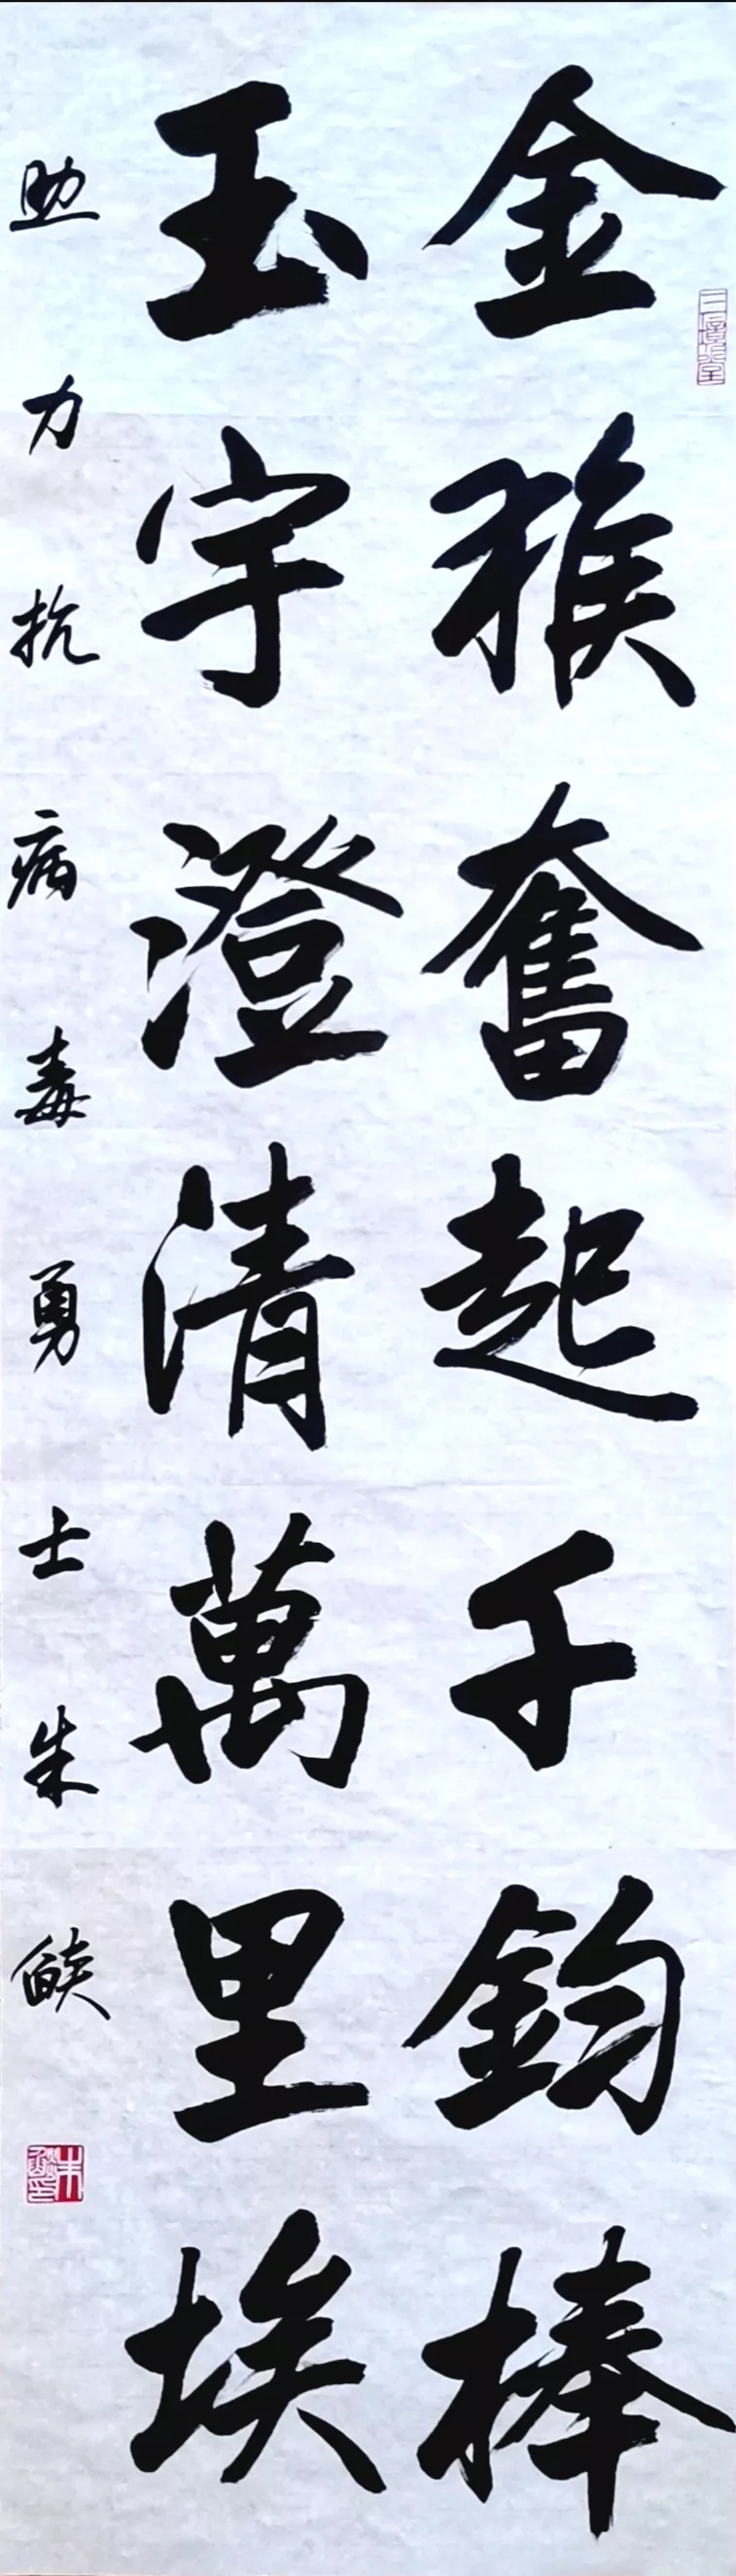 金猴奮起千鈞棒
玉宇澄清萬里埃
助力抗病毒勇士朱